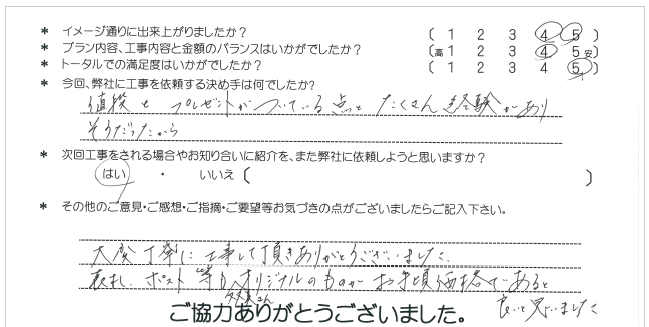 * イメージ通りに出来上がりましたか? ( 1 2 3 4 5 )
* プラン内容、工事内容と金額のバランスはいかがでしたか? (高 1 2 3 4 5 安)
* トータルでの満足度はいかがでしたか? ( 1 2 3 4 5 )
* 今回、弊社に工事を依頼する決め手は何でしたか?
値段とプレゼントがついている点とたくさん経験があり
そうだったから
* 次回工事をされる場合やお知り合いに紹介を、また弊社に依頼しようと思いますか?
はい ・ いいえ ( )
* その他のご意見・ご感想・ご指摘・ご要望等お気づきの点がございましたらご記入下さい。
大変丁寧に工事して頂きありがとうございました
表札、ポスト等もオリジナルのものが お手頃価格であると
たくさん
良いと思いました
ご協力ありがとうございました。